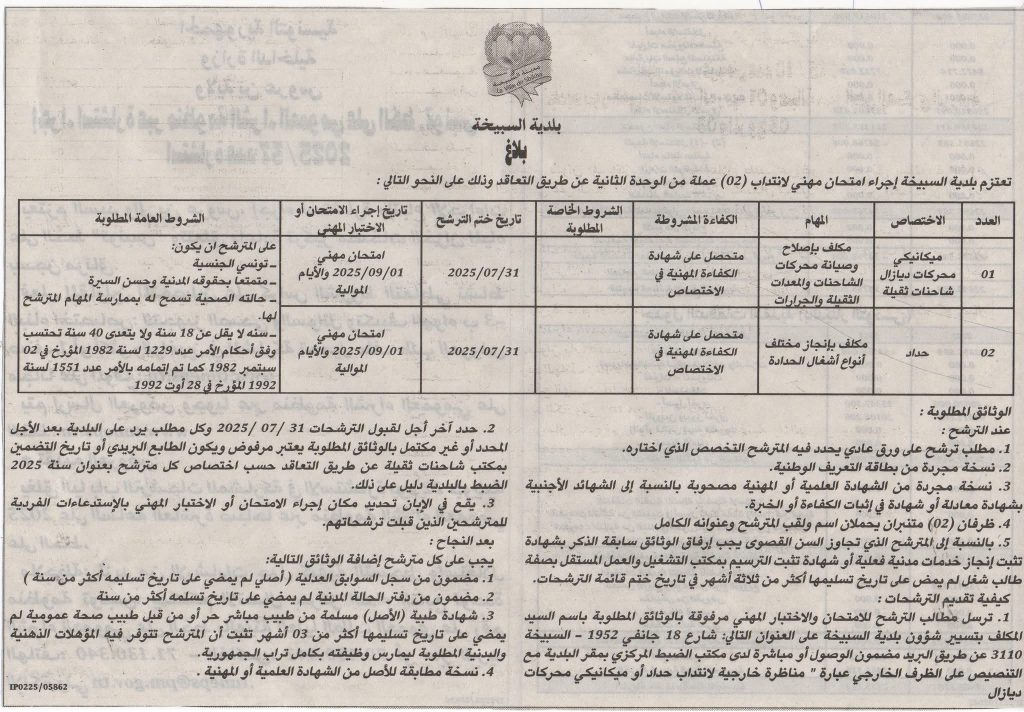 بلدية السبيخة
بلاغ
تعتزم بلدية السبيخة إجراء امتحان مهني لانتداب (02) عملة من الوحدة الثانية عن طريق التعاقد وذلك على النحو التالي :
العدد
الاختصاص
المهام
الكفاءة المشروطة
الشروط الخاصة المطلوبة
تاريخ ختم الترشح
تاريخ إجراء الامتحان أو الاختبار المهني
الشروط العامة المطلوبة
01
ميكانيكي
محركات ديازال
شاحنات ثقيلة
مكلف بإصلاح
وصيانة محركات
الشاحنات والمعدات
الثقيلة والجرارات
متحصل على شهادة
الكفاءة المهنية في
الاختصاص
2025/07/31
امتحان مهني
2025/09/01 والأيام
الموالية
02
حداد
مكلف بإنجاز مختلف
أنواع أشغال الحدادة
متحصل على شهادة
الكفاءة المهنية في
الاختصاص
2025/07/31
امتحان مهني
2025/09/01 والأيام
الموالية
على المترشح ان يكون:
ـ تونسي الجنسية
ـ متمتعا بحقوقه المدنية وحسن السيرة
ـ حالته الصحية تسمح له بممارسة المهام المترشح
لها.
ـ سنه لا يقل عن 18 سنة ولا يتعدى 40 سنة تحتسب
وفق أحكام الأمر عدد 1229 لسنة 1982 المؤرخ في 02
سبتمبر 1982 كما تم إتمامه بالأمر عدد 1551 لسنة
1992 المؤرخ في 28 أوت 1992
الوثائق المطلوبة :
عند الترشح :
1. مطلب ترشح على ورق عادي يحدد فيه المترشح التخصص الذي اختاره.
2. نسخة مجردة من بطاقة التعريف الوطنية.
3. نسخة مجردة من الشهادة العلمية أو المهنية مصحوبة بالنسبة إلى الشهائد الأجنبية
بشهادة معادلة أو شهادة في إثبات الكفاءة أو الخبرة.
4. ظرفان (02) متنبران يحملان اسم ولقب المترشح وعنوانه الكامل
5. بالنسبة إلى المترشح الذي تجاوز السن القصوى يجب إرفاق الوثائق سابقة الذكر بشهادة
تثبت إنجاز خدمات مدنية فعلية أو شهادة تثبت الترسيم بمكتب التشغيل والعمل المستقل بصفة
طالب شغل لم يمض على تاريخ تسليمها أكثر من ثلاثة أشهر في تاريخ ختم قائمة الترشحات.
كيفية تقديم الترشحات :
1. ترسل مطالب الترشح للامتحان والاختبار المهني مرفوقة بالوثائق المطلوبة باسم السيد
المكلف بتسيير شؤون بلدية السبيخة على العنوان التالي: شارع 18 جانفي 1952 – السبيخة
3110 عن طريق البريد مضمون الوصول أو مباشرة لدى مكتب الضبط المركزي بمقر البلدية مع
التنصيص على الظرف الخارجي عبارة " مناظرة خارجية لانتداب حداد أو ميكانيكي محركات
ديازال
بمكتب شاحنات ثقيلة عن طريق التعاقد حسب اختصاص كل مترشح بعنوان سنة 2025
2. حدد آخر أجل لقبول الترشحات 31 /07 /2025 وكل مطلب يرد على البلدية بعد الأجل
المحدد أو غير مكتمل بالوثائق المطلوبة يعتبر مرفوض ويكون الطابع البريدي أو تاريخ التضمين
الضبط بالبلدية دليل على ذلك.
3. يقع في الإبان تحديد مكان إجراء الامتحان أو الاختبار المهني بالإستدعاءات الفردية
للمترشحين الذين قبلت ترشحاتهم.
بعد النجاح :
يجب على كل مترشح إضافة الوثائق التالية:
1. مضمون من سجل السوابق العدلية ( أصلي لم يمضي على تاريخ تسليمه أكثر من سنة )
2. مضمون من دفتر الحالة المدنية لم يمضي على تاريخ تسلمه أكثر من سنة
3. شهادة طبية (الأصل) مسلمة من طبيب مباشر حر أو من قبل طبيب صحة عمومية لم
يمضي على تاريخ تسليمها أكثر من 03 أشهر تثبت أن المترشح تتوفر فيه المؤهلات الذهنية
والبدنية المطلوبة ليمارس وظيفته بكامل تراب الجمهورية.
4. نسخة مطابقة للأصل من الشهادة العلمية أو المهنية .
IP0225/05862